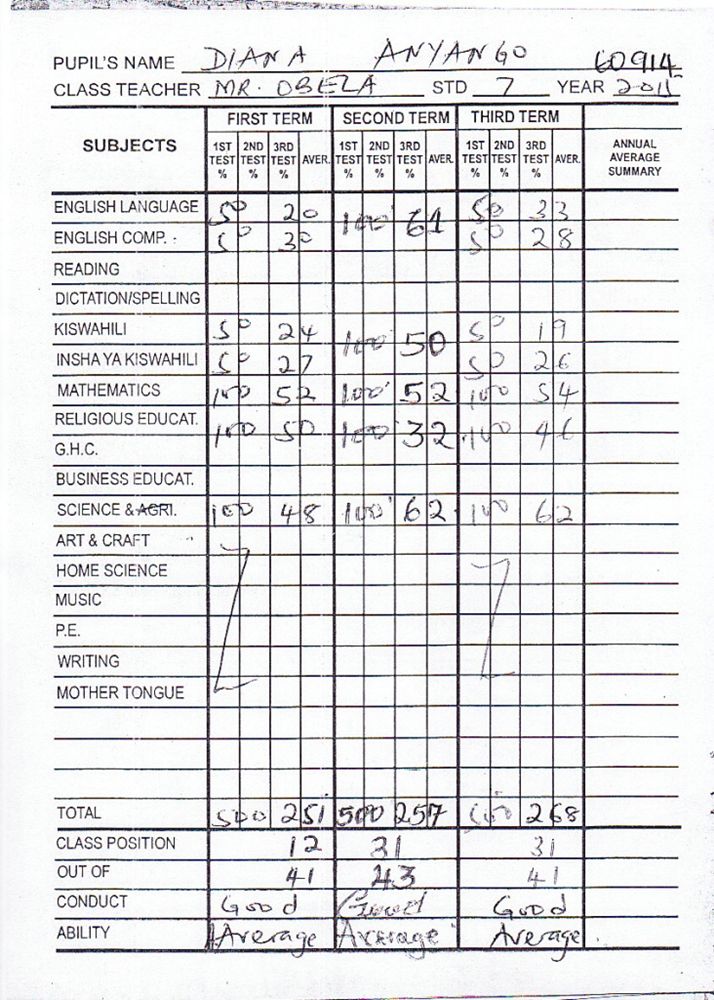 PUPIL'S NAME DIANA ANYANGO 60914
CLASS TEACHER MR. OBELA STD 7 YEAR 2011
SUBJECTS FIRST TERM SECOND TERM THIRD TERM ANNUAL AVERAGE SUMMARY
1ST TEST % 2ND TEST % 3RD TEST % AVER. 1ST TEST % 2ND TEST % 3RD TEST % AVER. 1ST TEST % 2ND TEST % 3RD TEST % AVER.
ENGLISH LANGUAGE 50 20 100 61 50 33
ENGLISH COMP. 50 30 50 28
READING
DICTATION/SPELLING
KISWAHILI 50 24 100 50 50 19
INSHA YA KISWAHILI 50 27 50 26
MATHEMATICS 100 52 100 52 100 54
RELIGIOUS EDUCAT. 100 50 100 32 100 46
G.H.C.
BUSINESS EDUCAT.
SCIENCE & AGRI. 100 48 100 62 100 62
ART & CRAFT
HOME SCIENCE
MUSIC
P.E.
WRITING
MOTHER TONGUE
TOTAL 500 251 500 257 500 268
CLASS POSITION 12 31 31
OUT OF 41 43 41
CONDUCT Good Good Good
ABILITY Average Average Average.